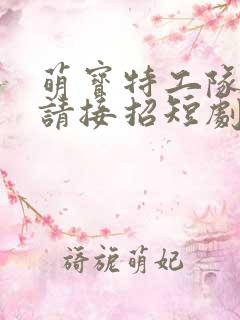 萌寶特工隊
請接招短劇
旖旎萌妃